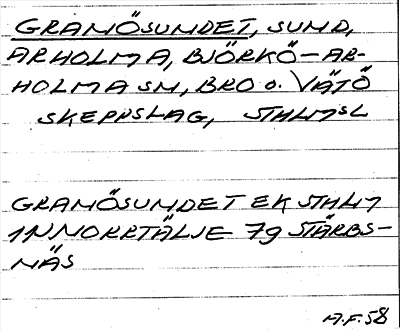 GRAMÖSUNDET, SUND,
ARHOLMA, BJÖRKÖ-AR-
HOLMA SN, BRO o. VÄTÖ
SKEPPSLAG, STHLMSL
GRAMÖSUNDET EK STHLM
1N NORRTÄLJE 79 STÄRBS-
NÄS
A.F. 58